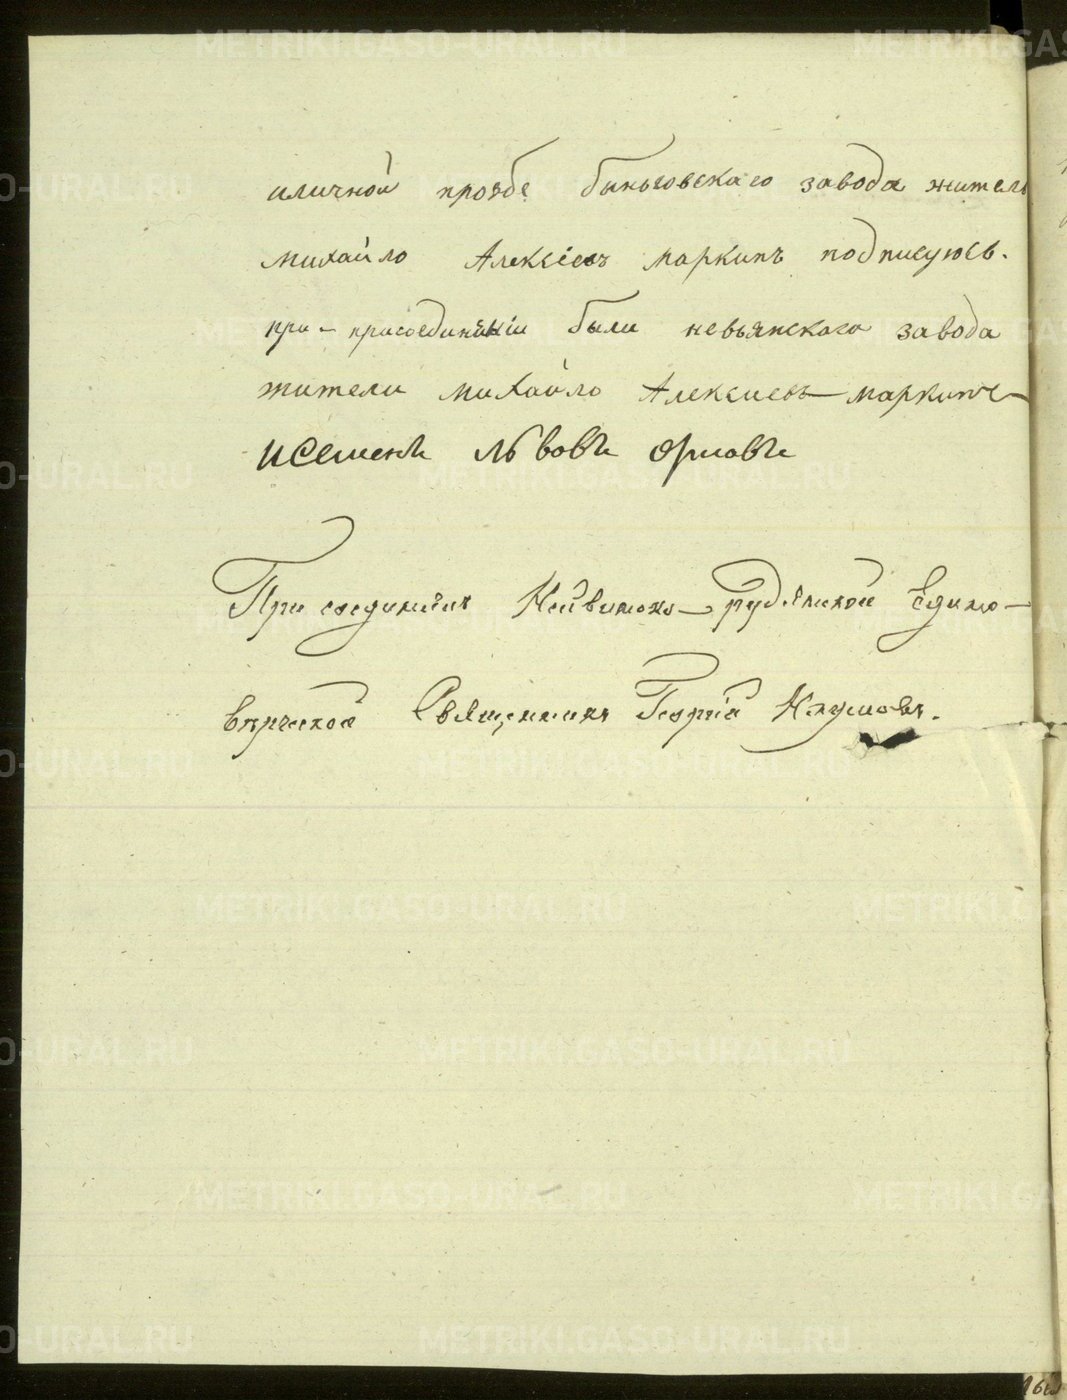 иличной прозбе быньговскаго завода житель
михайло Алексiевъ маркинъ подписуюсь.
при присоединѣнiи были невьянскаго завода
жители михайло Алексиевъ маркинъ
исеменъ львовъ орловъ
Присоединилъ Нейвинско-рудянской Едино-
верческой Священникъ Георгiй